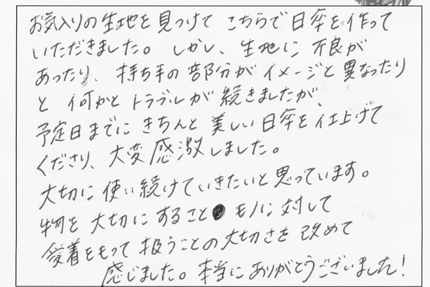 お気入りの生地を見つけて こちらで日傘を作って
いただきました。しかし、生地に 不良が
あったり、持ち手の部分がイメージと異なったり
と 何かと トラブルが 続きましたが、
予定日までに きちんと 美しい日傘を仕上げて
くださり、大変感激しました。
大切に 使い続けていきたいと思っています。
物を 大切にすること モノに対して
愛着をもって 扱うことの大切さを 改めて
感じました。本当にありがとうございました!